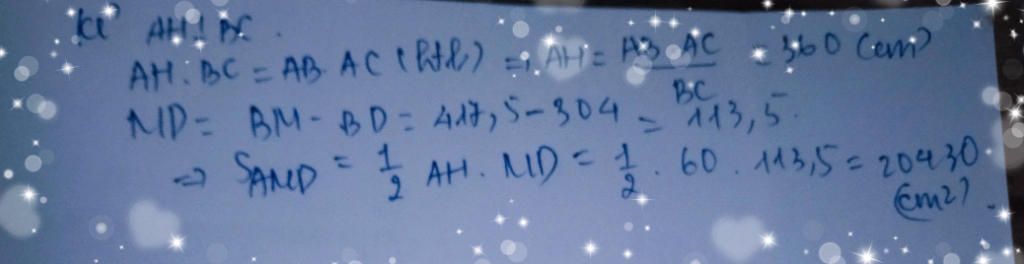 Kẻ AH ⊥ BC.
AH . BC = AB . AC (htl) => AH = AB . AC / BC = 360 (cm)
MD = BM - BD = 417,5 - 304 = 113,5.
=> SAMD = 1/2 AH . MD = 1/2 . 60 . 113,5 = 20430 (cm2).